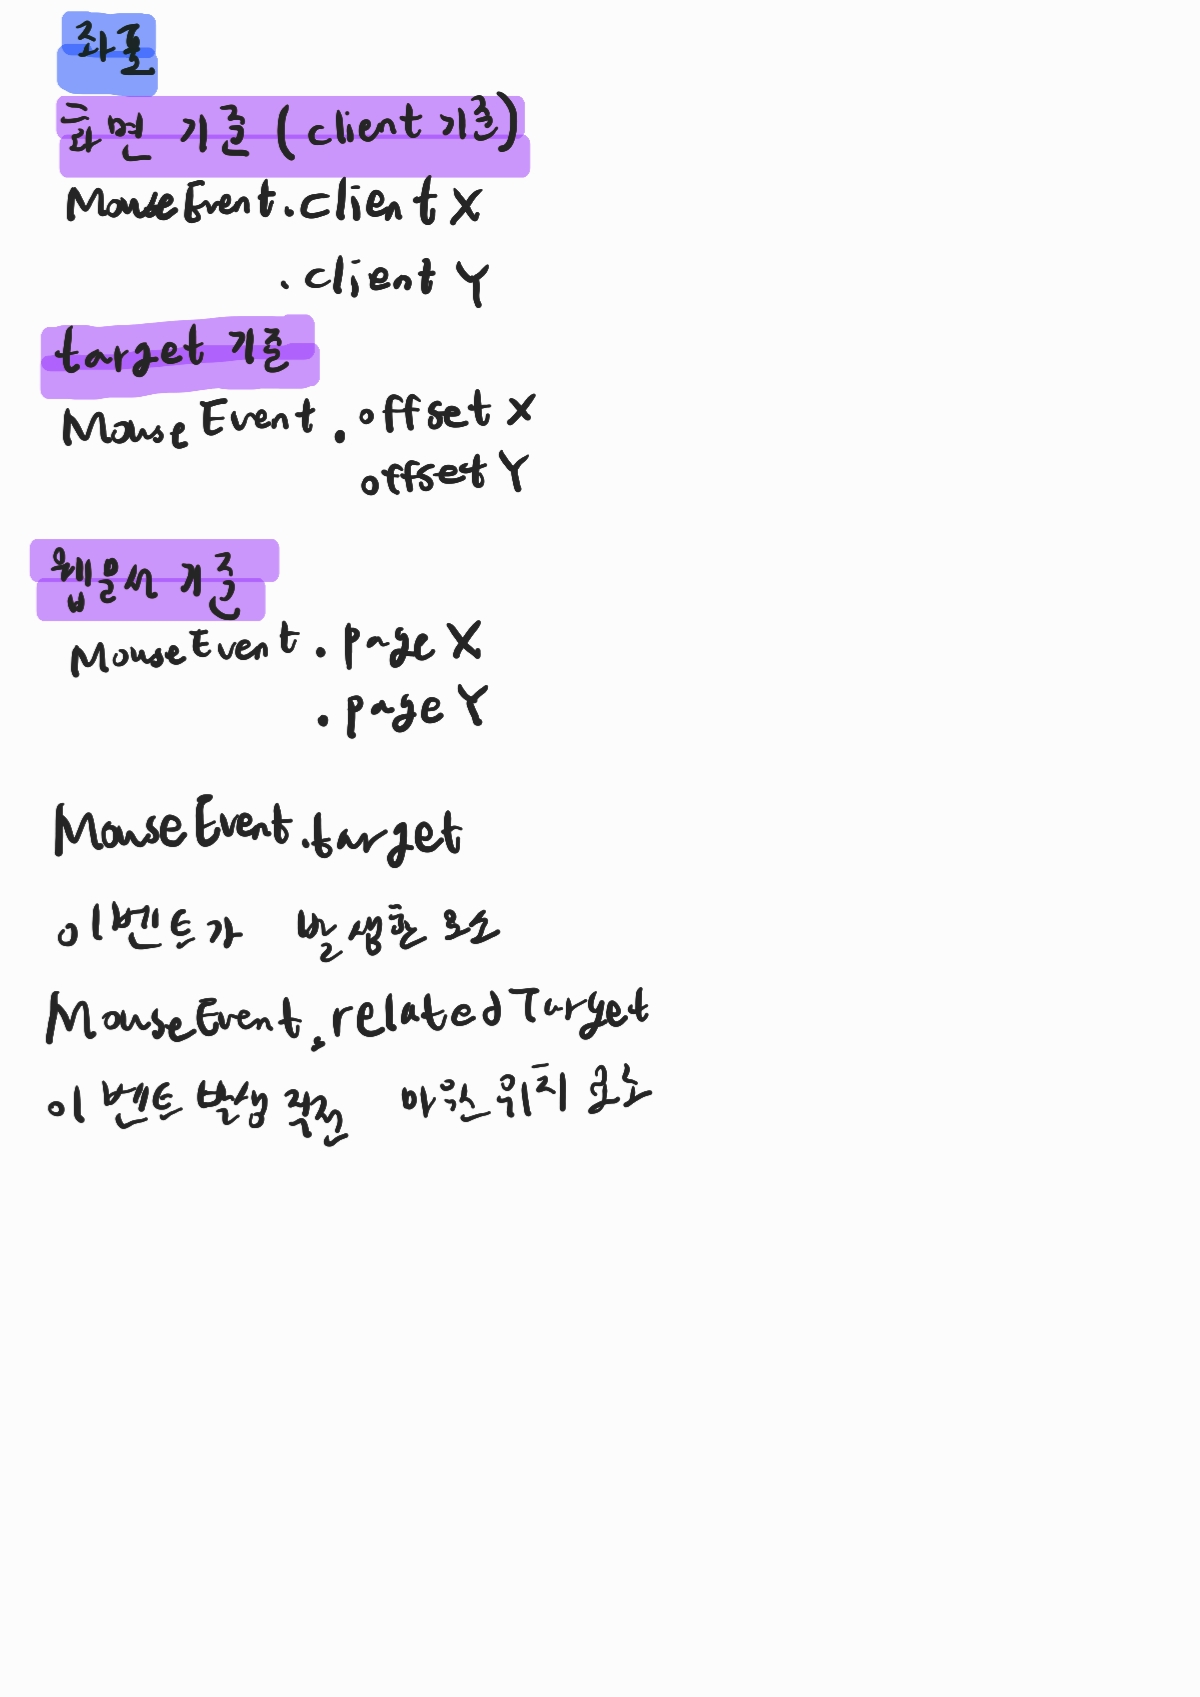 좌표
화면 기준 (client 기준)
MouseEvent.clientX
.clientY
target 기준
MouseEvent.offsetX
offsetY
웹문서 기준
MouseEvent.pageX
.pageY
MouseEvent.target
이벤트가 발생한 요소
MouseEvent.relatedTarget
이벤트 발생 직전 마우스 위치